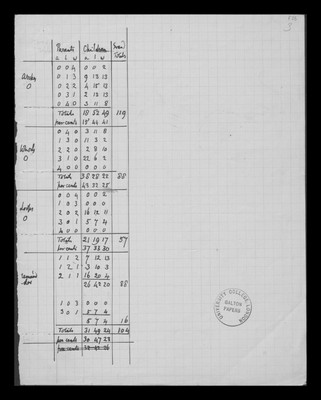 Parents Children Grand Totals
a l w a l w
0 0 4 0 0 2
0 1 3 9 13 13
0 2 2 4 15 13
0 3 1 2 13 13
0 4 0 3 11 8
Totals 18 52 49 119
per cents 15 44 41
0 4 0 3 11 8
1 3 0 11 3 2
2 2 0 2 8 10
3 1 0 22 6 2
4 0 0 0 0 0
Totals 38 28 22 88
per cents 43 32 25
0 0 4 0 0 2
1 0 3 0 0 0
2 0 2 16 12 11
3 0 1 5 7 4
4 0 0 0 0 0
Totals 21 19 17 57
per cents 37 33 30
1 1 2 7 12 13
1 2 1 3 10 3
2 1 1 16 20 4
26 42 20 88
1 0 3 0 0 0
3 0 1 5 7 4
5 7 4 16
Totals 31 49 24 104
per cents 30 47 23
per cents
UNIVERSITY COLLEGE LONDON
GALTON PAPERS